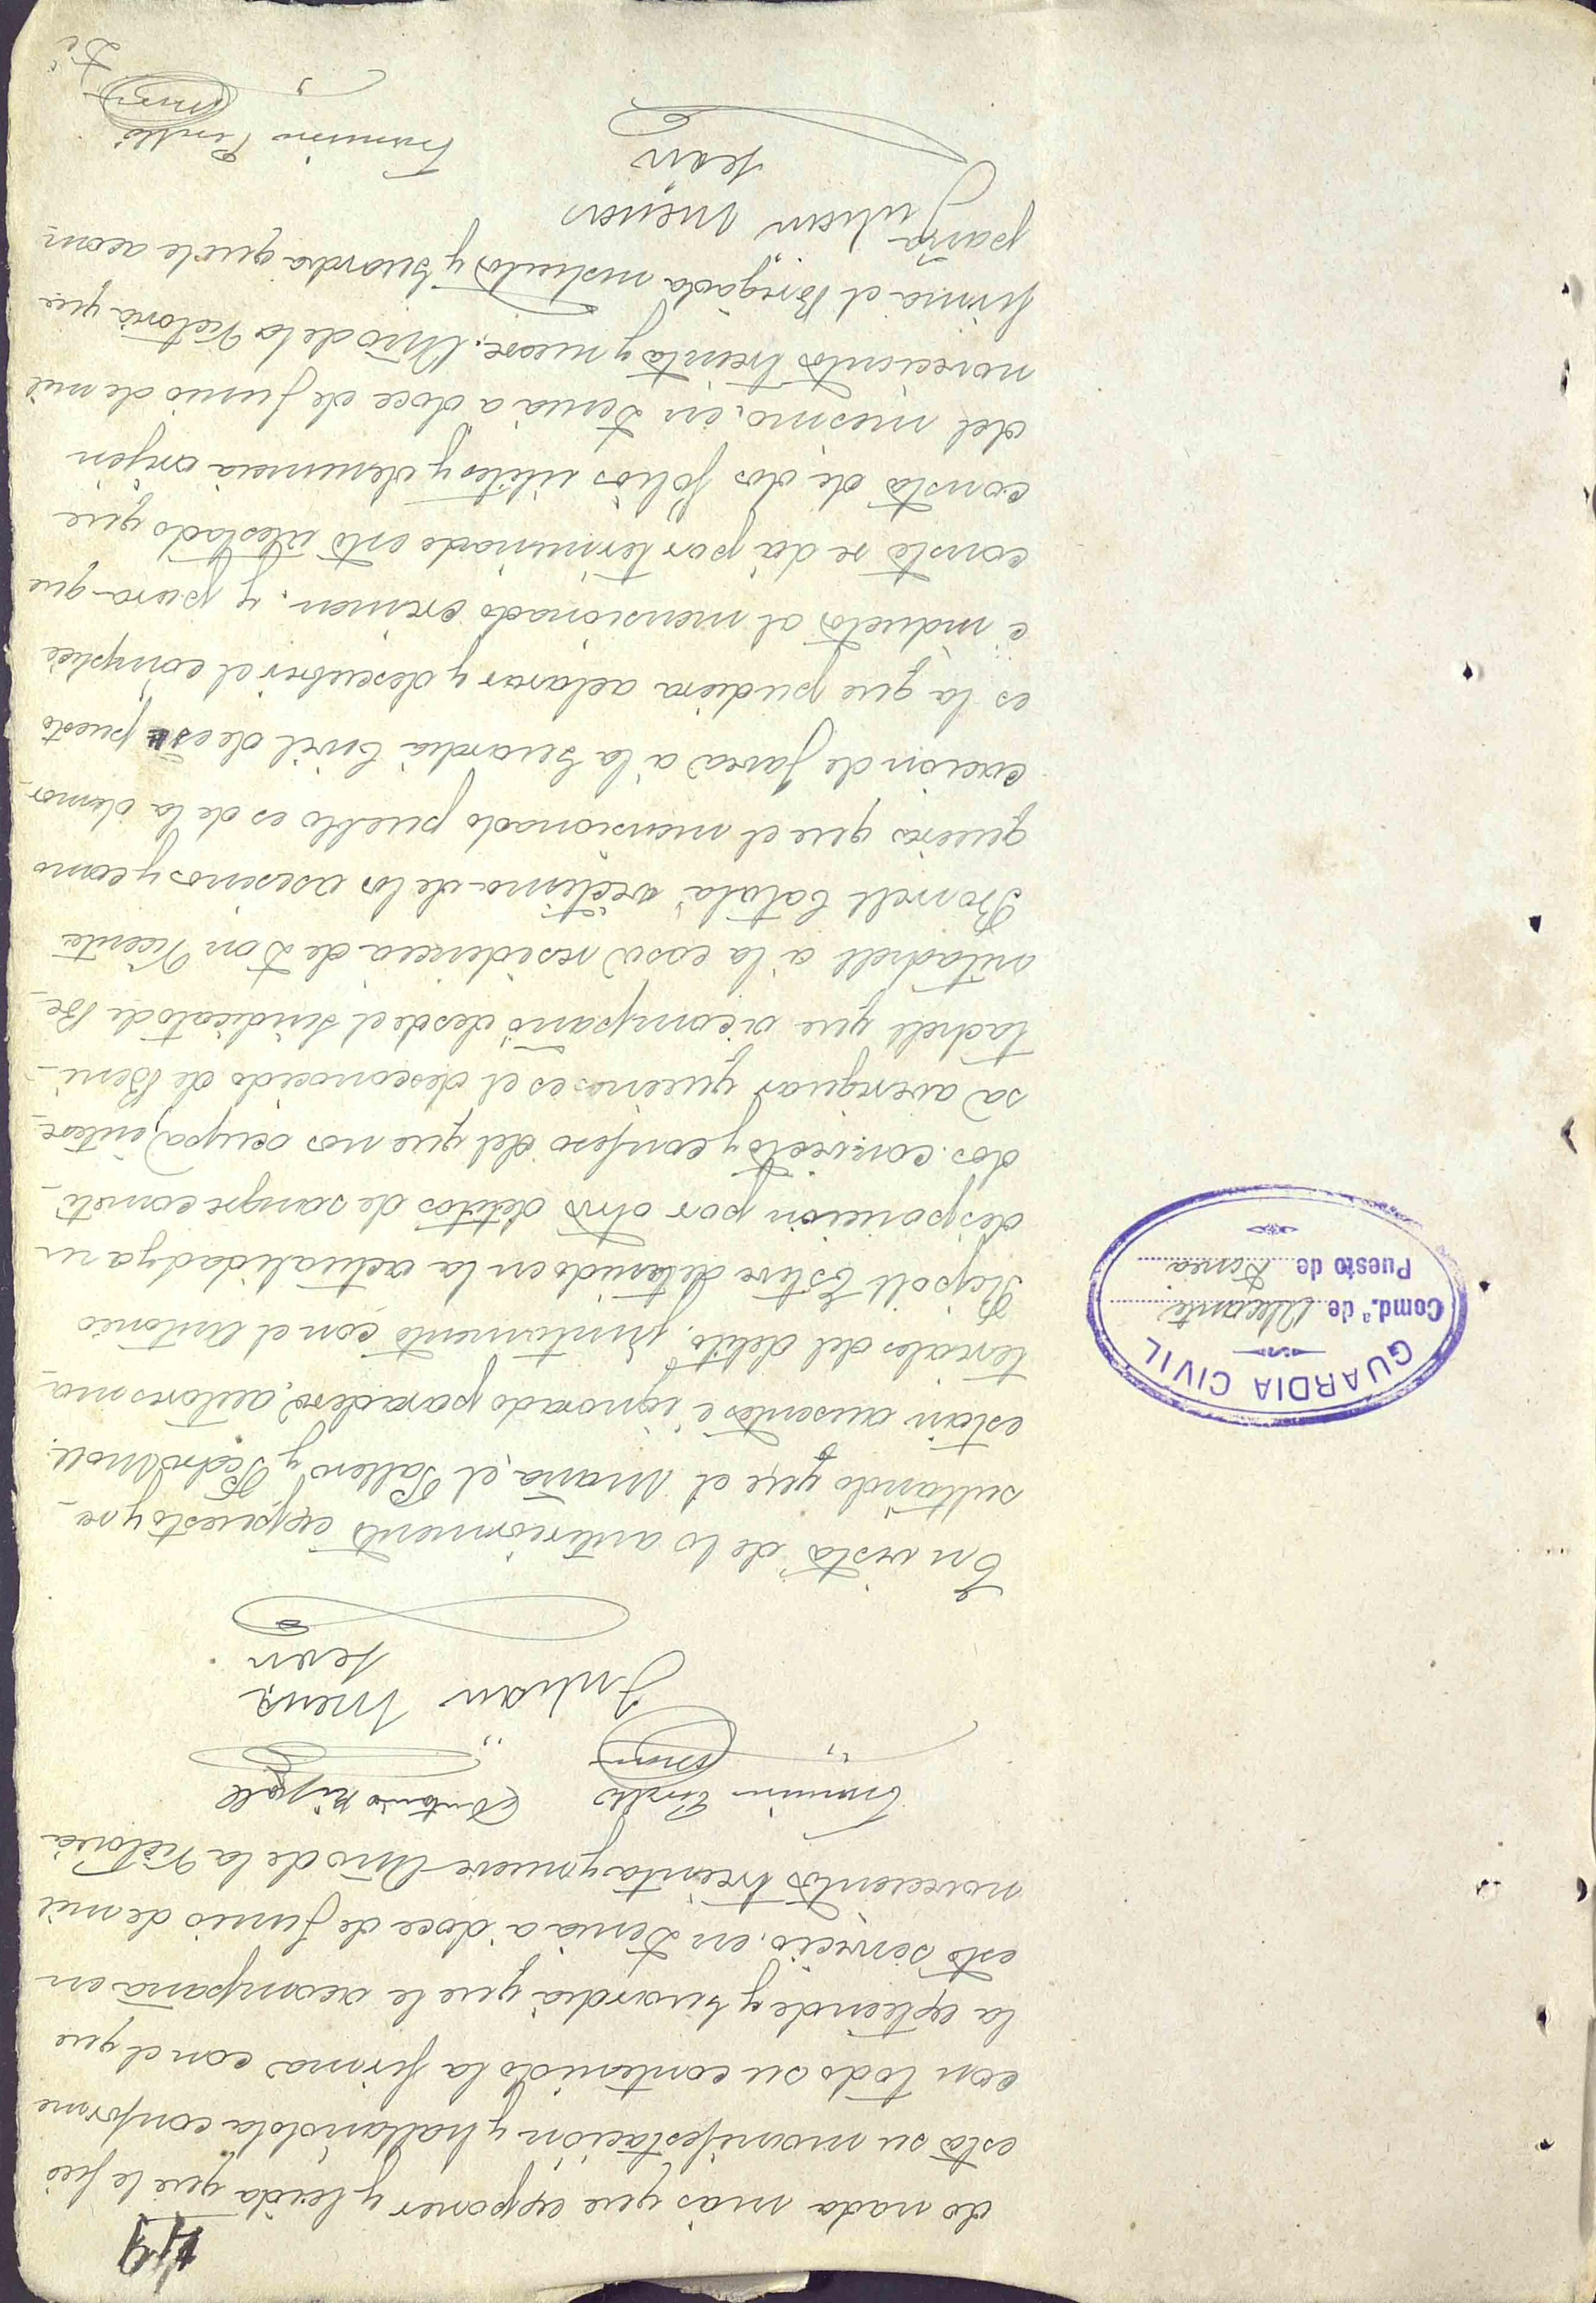 49
do nada más que exponer y leida que le fué
esta su manifestación y hallandola conforme
con todo su contenido la firma con el que
la extiende y Guardia que le acompaña en
este servicio, en Denia a doce de Junio de mil
novecientos treinta y nueve Año de la Victoria
Antonio Ripoll
Julian Mena
León
En vista de lo anteriormente expuesto y re-
sultando que el Maña, el Pallero y Pedro Moll
están ausentes é ignorado paradero, autores ma-
teriales del delito, juntamente con el Antonio
Ripoll Estive detenido en la actualidad y a su
disposición por otros delitos de sangre cometi-
dos, convicto y confeso del que nos ocupa, intere-
sa averiguar quienes es el desconocido de Beni-
tachell que acompañó desde el Sindicato de Be-
nitachell a la casa residencia de Don Vicente
Boronell Catalá victima de los asesinos y como
quiera que el mensionado pueblo es de la demar-
cación de Javea a la Guardia Civil de este puesto
es la que pudiera aclarar y descubrir el complice
é inducto al mensionado crimen. y para que
conste se dá por terminado esta atestado que
consta de dos folios utiles y denuncia orijen
del mismo, en Denia a doce de Junio de mil
novecientos treinta y nueve. Año de la Victoria que
firma el Brigada instructor y Guardia que le acom-
paña
Julian Mena
León
Di
GUARDIA CIVIL
Comd.ª de Alicante
Puesto de Denia